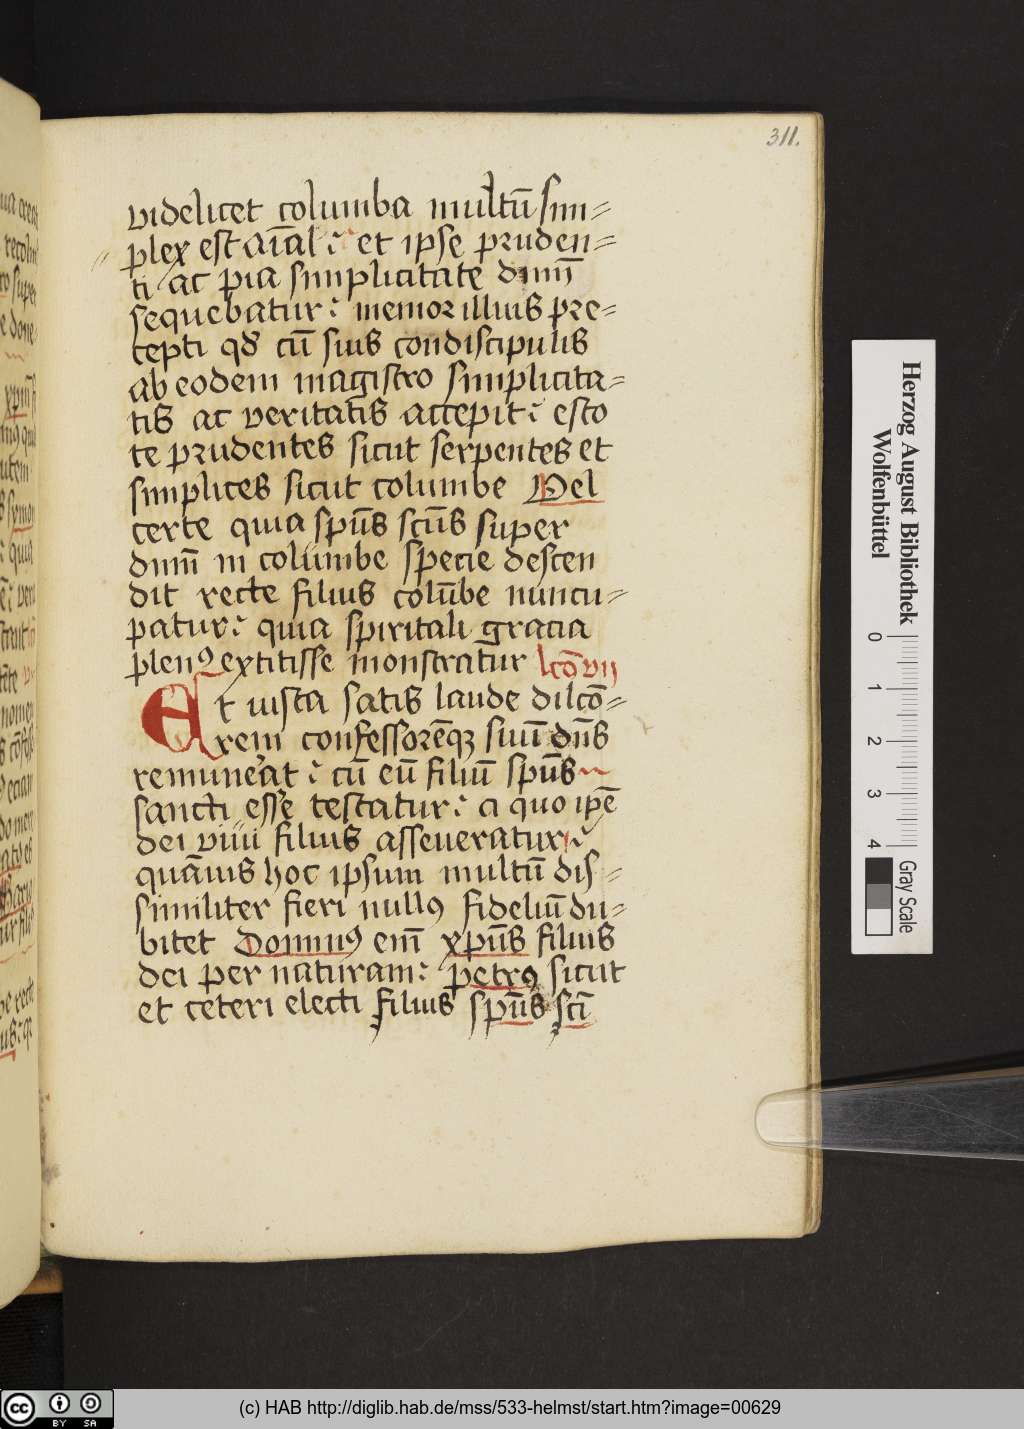 311.
videlicet columba multū sim⸗
plex est aīal ⁊ et ipse pruden⸗
ti ac pia simplicitate dnm̄
sequebatur: memor illius pre⸗
cepti qd̄ cū suis condiscipulis
ab eodem magistro simplicita⸗
tis ac veritatis accepit: esto
te prudentes sicut serpentes et
simplices sicut columbe Vel
certe quia spūs scūs super
dnm̄ in columbe specie descen
dit recte filius colūbe nuncu⸗
patur: quia spiritali gracia
plenꝰ extitisse monstratur lcō vij
Et iusta satis laude dilcō⸗
rem confessorēqꝫ suū dn̄s
remunerat: cū eū filiū spūs
sancti esse testatur: a quo ipē
dei viui filius asseueratur:
quāuis hoc ipsum multū dis⸗
similiter fieri nullꝰ fideliū du⸗
bitet Dominꝰ eī xpūs filius
dei per naturam: petrꝰ sicut
et ceteri electi filius spūs scī
Herzog August Bibliothek
Wolfenbüttel
0 1 2 3 4
Gray Scale
cc BY SA
(c) HAB http://diglib.hab.de/mss/533-helmst/start.htm?image=00629